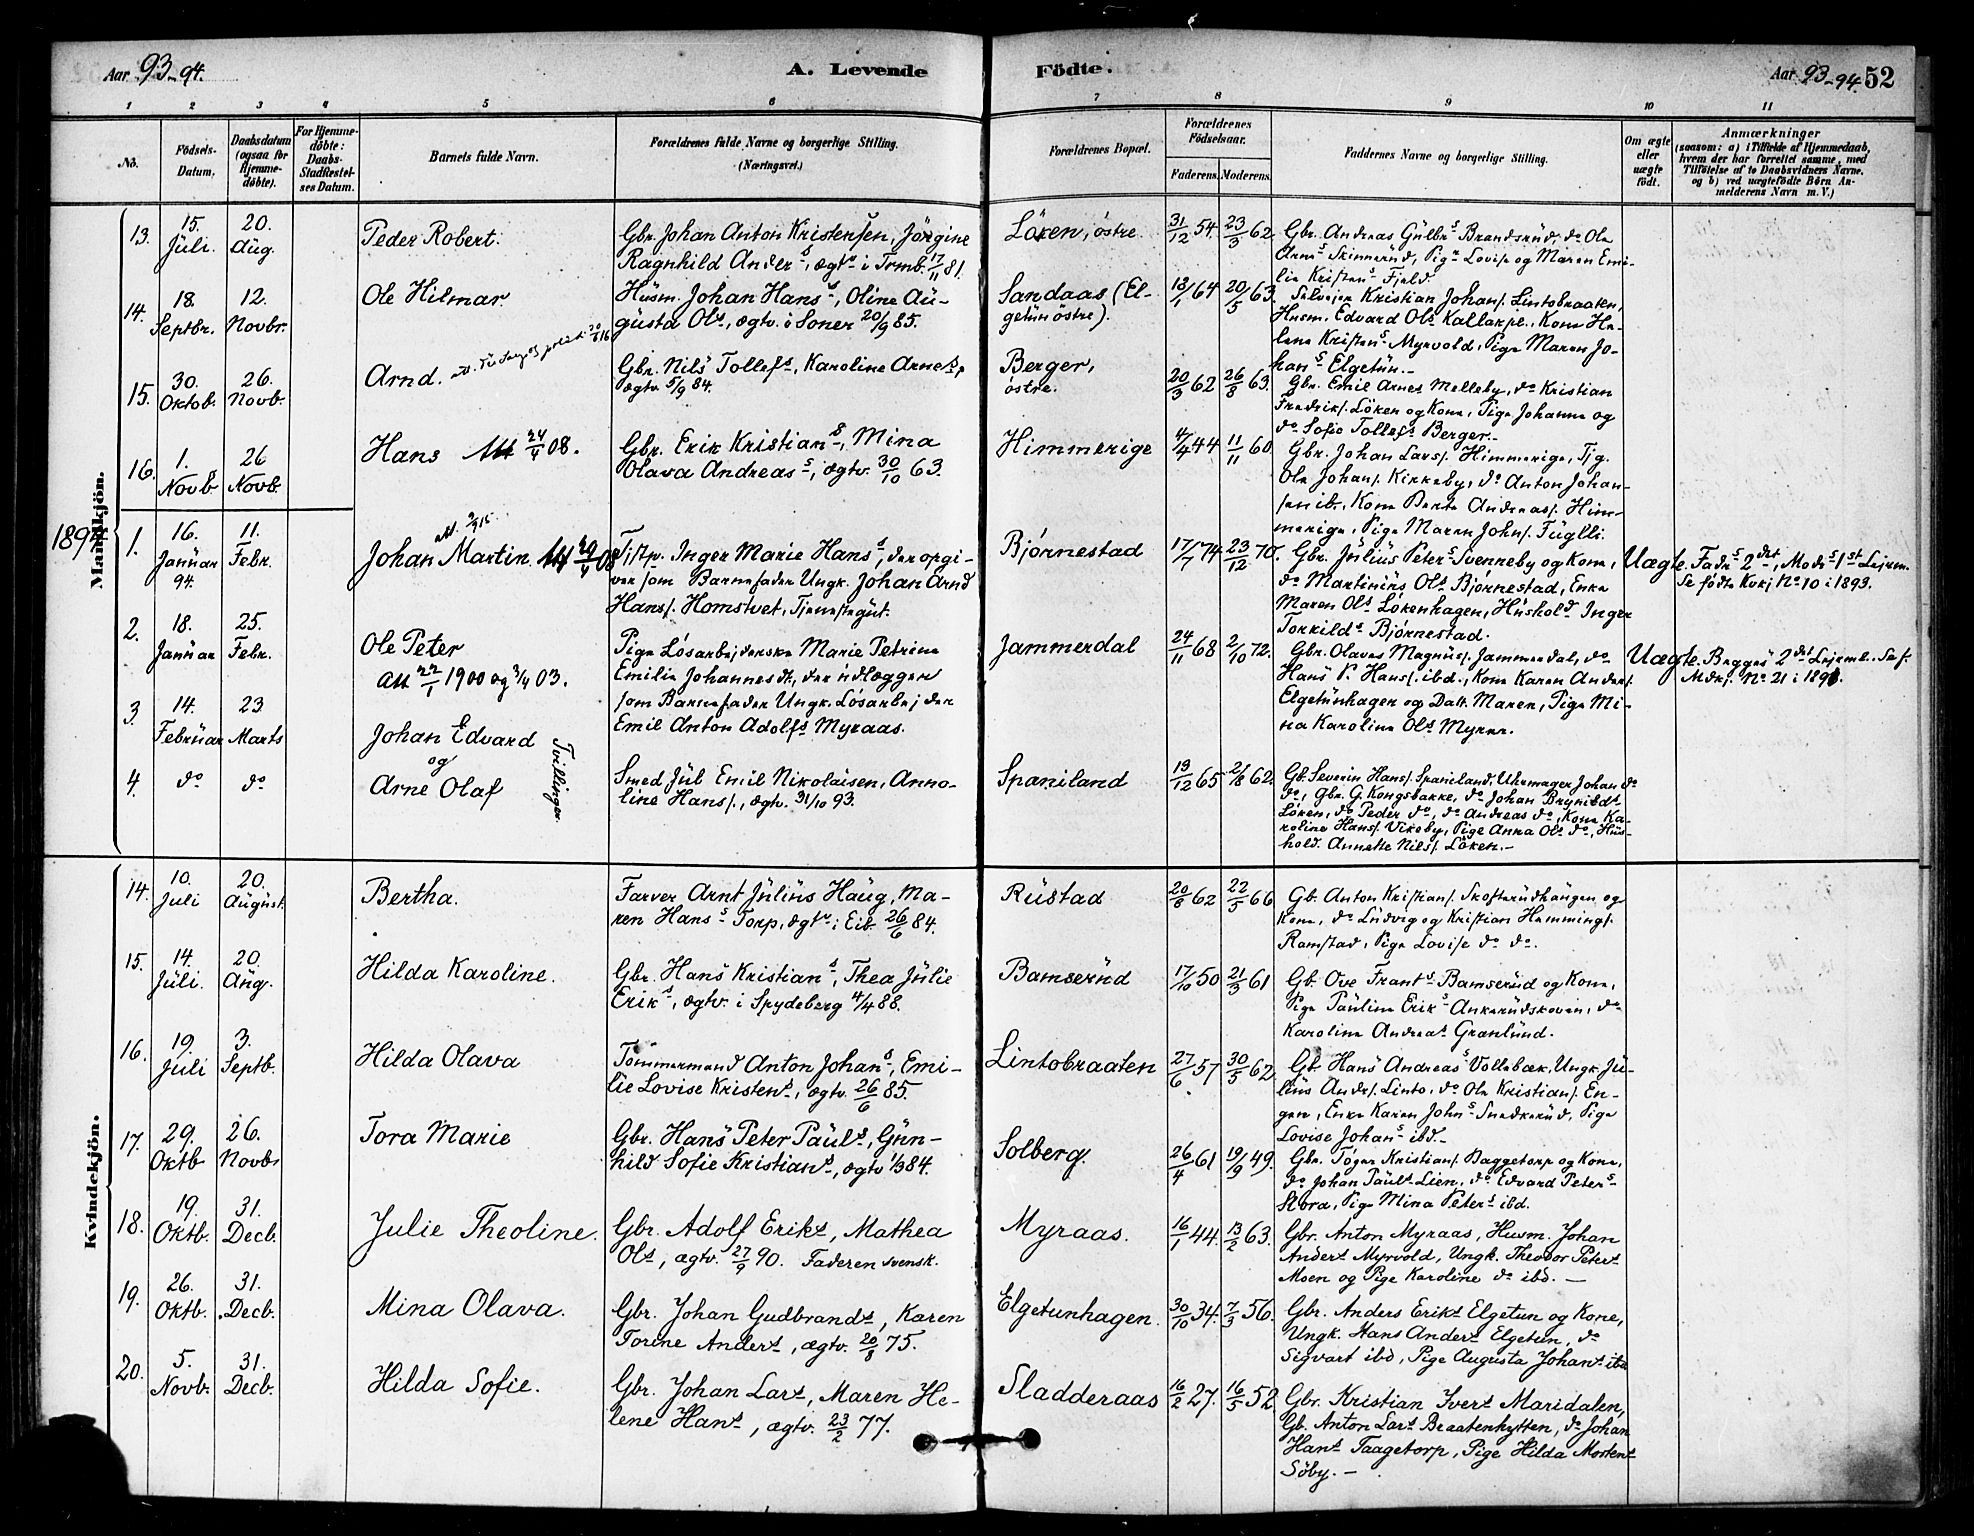 Aar 93-94.
A. Levende
Födte.
Aar 93-94. 52
1 2 3 4 5 6 7 8 9 10 11
No.
Födsels-Datum.
Daabsdatum (ogsaa for Hjemme-döbte).
For Hjemme-döbte: Daabs-Stadfæstel-ses Datum.
Barnets fulde Navn.
Forældrenes fulde Navne og borgerlige Stilling. (Næringsvei.)
Forældrenes Bopæl.
Forældrenes Födselsaar.
Faderens. Moderens.
Faddernes Navne og borgerlige Stilling.
Om ægte eller uægte födt.
Anmærkninger (saasom: a) i Tilfælde af Hjemmedaab, hvem der har forrettet samme, med Tilföielse af to Daabsvidners Navne, og b) ved uægtefödte Börn An-melderens Navn m. V.)
Mandkjön.
13. 15. Juli. 20. Aug. Peder Robert. Gbr. Johan Anton Kristensen, Jörgine
Ragnhild Anders, ægtv. i Trmb. 17/11 81. Löken, östre. 31/12 54. 23/3 62.
Gbr. Andreas Gulbrs Brandsrud, do Ole
Arnes Skinnerud, Pige Lovise og Maren Emi-
lie Kristens Fjeld.
14. 18. Septbr. 12. Novbr. Ole Hilmar Husm. Johan Hans, Oline Au-
gusta Ols, ægtv. i Soner 20/9 85. Sandaas (El-
getun östre). 18/1 64 20/5 63.
Selveier Kristian Johans. Lintobraaten,
Husm. Edvard Ols Kallakpl., Kone He-
lene Kristens Myrvold, Pige Maren Jo-
hans Elgetun.-
15. 30. Oktob. 26. Novb. Arnd. Gbr. Nils Tollefs, Karoline Arnes,
ægtv. 5/9 84. Berger, östre. 20/3 62 26/8 63.
Gbr. Emil Arnes Melleby, do Kristian
Fredriks. Löken og Kone, Pige Johanne og
do Sofie Tollefs Berger.-
16. 1. Novb. 26 Novb. Hans Att 24/4 08. Gbr. Erik Kristians, Mina
Olava Andreas, ægtv. 30/10 63. Himmerige 4/4 44 11/11 60.
Gbr. Johan Lars. Himmerige, Tjg.
Ole Johans. Kirkeby, do Anton Johan-
sen ib., Kone Berte Andreas. Him-
merige, Pige Maren Johs. Fuglli.
1894
1. 16. Januar 94. 11. Febr. att. 2/9 15 Johan Martin. Att 29/4 08 Tjstp. Inger Marie Hans, der opgi-
ver som Barnefader Ungk. Johan Arnd
Hans. Homstvet, Tjenestegut. Bjørnestad 17/7 74. 23/12 70.
Gbr. Julius Peters Svenneby og Kone,
do Martinius Ols Bjørnestad, Enke
Maren Ols Lökenhagen, Hushold. Inger
Torkilds Bjørnestad.
Uægte. Fadrs 2det, Modrs 1st Leierm.
Se födte Kvkj No 10 i 1893.
2. 18. Januar 25. Febr. Ole Peter
att 22/1 1900 og 3/4 03. Pige Løsarbejderske Marie Petrine
Emilie Johannesdt, der udlægger
som Barnefader Ungk. Løsarbejder
Emil Anton Adolfs Myraas. Jammerdal 24/11 68 2/10 72.
Gbr. Olaves Magnus. Jammerdal, do
Hans P. Hans. ibd., Kone Karen Anders.
Elgetunhagen og Datt. Maren, Pige Mi-
na Karoline Ols Myrer.
Uægte. Begges 2det Leierml. Se f.
Mdkj. No 21 i 1891.
3. 14. Februar 23. Marts Johan Edvard
og
4. do do Arne Olaf
Tvillinger.
Smed Jul Emil Nikolaisen, Anno-
line Hans., ægtv. 31/10 93. Spaniland 19/12 65 2/8 62.
Gb. Severin Hans. Spaniland, Uhrmager Johan do
do, Gbr. G. Kongsbakke, do Johan Brynildt
Löken, do Peder do, do Andreas do, Kone Ka-
roline Hans. Vikeby, Pige Anna Ols do, Hus-
hold. Annette Nils. Löken.-
Kvindekjön.
14. 10. Juli 20. August. Bertha. Farver Arnt Julius Haug, Ma-
ren Hans Torp, ægtv. i Eib. 26/6 84. Rustad 20/8 62 22/5 66
Gb. Anton Kristians. Skofterudhaugen og
Kone, do Ludvig og Kristian Hemmings.
Ramstad, Pige Lovise do do.
15. 14. Juli. 20. Aug. Hilda Karoline. Gbr. Hans Kristians, Thea Julie
Eriks, ægtv. i Spydeberg 4/4 88. Bamserud 17/10 50 21/3 61
Gb. Ove Frants Bamserud og Kone,
Pige Pauline Eriks Ankerudskoven, do
Karoline Andreas Grønlund.
16. 19. Juli 3. Septb. Hilda Olava Tømmermand Anton Johans, Emi-
lie Lovise Kristens, ægtv. 26/6 85. Lintobraaten 27/6 57 30/5 62
Gb. Hans Andreas Vollebæk, Ungk. Ju-
lius Ands. Linto, do Ole Kristians. En-
gen, Enke Karen Johns Snedkerud, Pige
Lovise Johans ibd.-
17. 29. Oktb 26. Novbr Tora Marie Gbr. Hans Peter Pauls, Gun-
hild Sofie Kristians, ægtv 1/3 84. Solberg. 26/4 61 19/9 49.
Gbr. Töger Kristians. Baggetorp og Kone,
do Johan Pauls Lien, do Edvard Peters
Stora, Pige Mina Peters ibd.
18. 19. Oktb. 31. Decb. Julie Theoline. Gbr. Adolf Eriks, Mathea
Ols, ægtv. 27/9 90. Faderen svensk. Myraas. 16/1 44. 13/2 63.
Gbr. Anton Myraas, Husm. Johan
Anders Myrvold, Ungk. Theodor Peters
Moen og Pige Karoline do ibd. -
19. 26. Oktb. 31. Decb. Mina Olava. Gbr. Johan Gudbrands, Karen
Torine Anders, ægtv. 20/8 75. Elgetunhagen. 30/10 34. 7/3 56.
Gbr. Anders Eriks Elgetun og Kone,
Ungk. Hans Anders Elgetun, do
Sigvart ibd, Pige Augusta Johans ibd
20. 5. Novb. 31. Decb. Hilda Sofie. Gbr. Johan Lars, Maren He-
lene Hans, ægtv. 23/2 77. Sladderaas 16/2 27. 16/5 52
Gbr. Kristian Ivers Maridalen,
Gb. Anton Lars Braatenhytten, do Johan
Hans Taagetorp, Pige Hilda Mortens
Söby. -